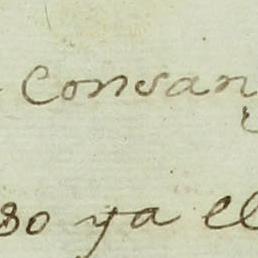 consan
so ya el